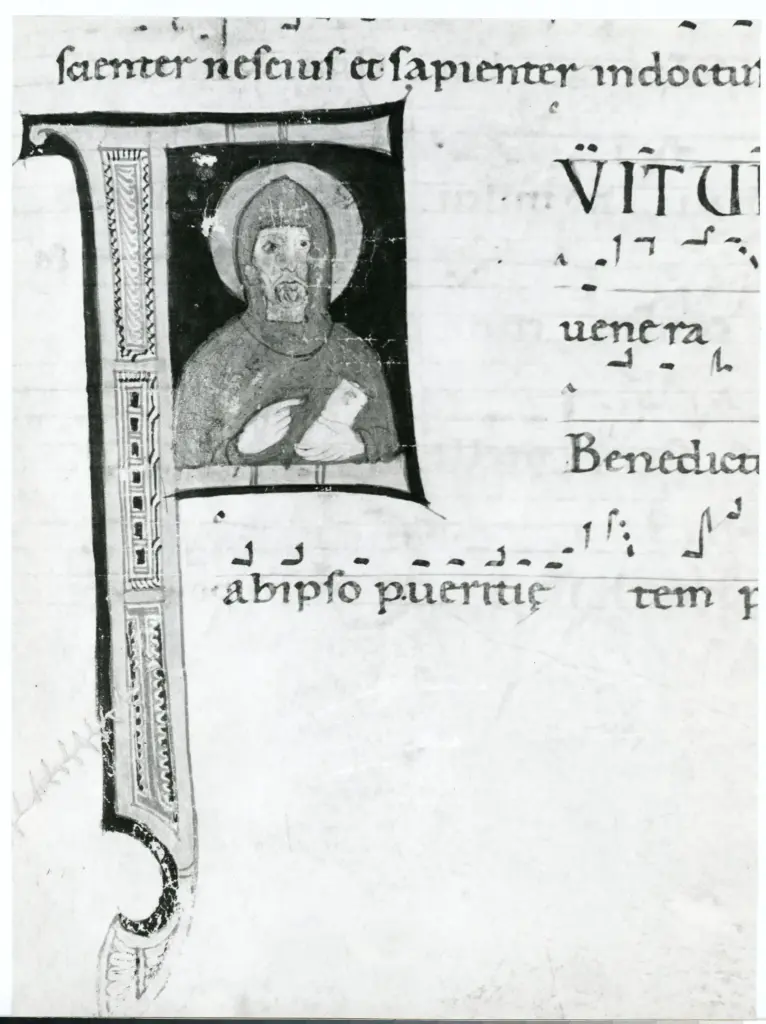 ſcienter neſciuſ et ſapienter indoctuſ
F VIT UI
uenera
Benedict
ab ipſo pueritię tem p